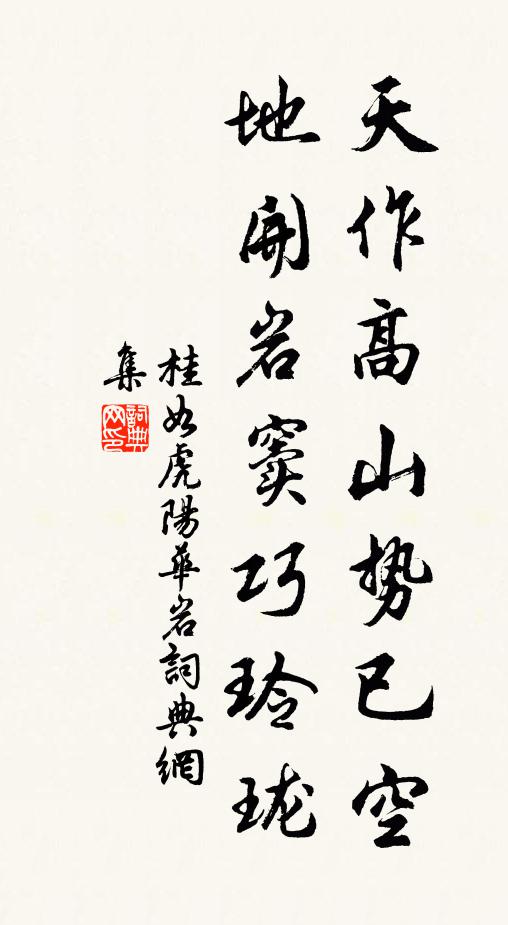 天作高山势已空
地開岩窦巧玲珑
桂如虎陽華岩詞典網
集
詞典网印